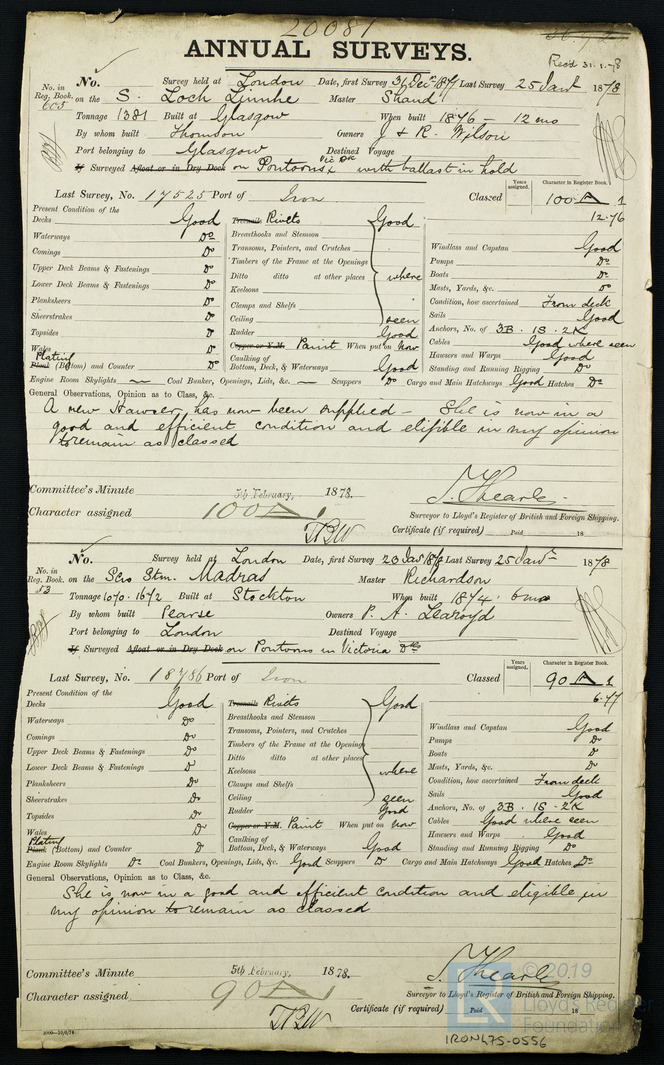 20081
ANNUAL SURVEYS.
Recd 31.1.78
No. in Reg. Book. 605
No. Survey held at London Date, first Survey 31 Dec 1877 Last Survey 25 Jany 1878
on the S. Loch Linnhe Master Shand
Tonnage 1381 Built at Glasgow When built 1876 - 12 mo
By whom built Thomson Owners J & R. Wilson
Port belonging to Glasgow Destined Voyage
If Surveyed Afloat or in Dry Dock on Pontoons Vic Dk with ballast in hold
Last Survey, No. 17525 Port of Iron Classed Years assigned. Character in Register Book. 100 A 1
12.76
Present Condition of the
Decks Good Treenails Rivets Good
Waterways Do Breasthooks and Stemson Windlass and Capstan Good
Comings Do Transoms, Pointers, and Crutches Pumps Do
Upper Deck Beams & Fastenings Do Timbers of the Frame at the Openings Boats Do
Lower Deck Beams & Fastenings Do Ditto ditto at other places where Masts, Yards, &c. Do
Planksheers Do Keelsons Condition, how ascertained From deck
Sheerstrakes Do Clamps and Shelfs Sails Good
Topsides Do Ceiling seen Anchors, No. of 3B. 1S. 2K
Wales Do Rudder Good Cables Good where seen
Plating Copper or Y.M. Paint When put on now Hawsers and Warps Good
Plank (Bottom) and Counter Do Caulking of Bottom, Deck, & Waterways Good Standing and Running Rigging Do
Engine Room Skylights — Coal Bunker, Openings, Lids, &c. — Scuppers Do Cargo and Main Hatchways Good Hatches Do
General Observations, Opinion as to Class, &c.
A new Hawser has now been supplied - She is now in a
good and efficient condition and eligible in my opinion
to remain as classed
Committee's Minute 5th February, 1878.
Character assigned 100 A 1
J. Thearle
Surveyor to Lloyd's Register of British and Foreign Shipping.
Certificate (if required) Paid 18
No. in Reg. Book. 53
No. Survey held at London Date, first Survey 23 Jany 1878 Last Survey 25 Jany 1878
on the Scw Stm. Madras Master Richardson
Tonnage 1070.1672 Built at Stockton When built 1874. 6 mo
By whom built Pearse Owners P. A. Learoyd
Port belonging to London Destined Voyage
If Surveyed Afloat or in Dry Dock on Pontoons in Victoria Dks
Last Survey, No. 18786 Port of Iron Classed Years assigned. Character in Register Book. 90 A 1
6.77
Present Condition of the
Decks Good Treenails Rivets Good
Waterways Do Breasthooks and Stemson Windlass and Capstan Good
Comings Do Transoms, Pointers, and Crutches Pumps Do
Upper Deck Beams & Fastenings Do Timbers of the Frame at the Openings Boats Do
Lower Deck Beams & Fastenings Do Ditto ditto at other places Masts, Yards, &c. Do
Planksheers Do Keelsons where Condition, how ascertained From deck
Sheerstrakes Do Clamps and Shelfs Sails Good
Topsides Do Ceiling seen Anchors, No. of 3B. 1S. 2K
Wales Do Rudder Good Cables Good where seen
Plating Copper or Y.M. Paint When put on now Hawsers and Warps Good
Plank (Bottom) and Counter Do Caulking of Bottom, Deck, & Waterways Good Standing and Running Rigging Do
Engine Room Skylights Do Coal Bunkers, Openings, Lids, &c. Good Scuppers Do Cargo and Main Hatchways Good Hatches Do
General Observations, Opinion as to Class, &c.
She is now in a good and efficient condition and eligible in
my opinion to remain as classed
Committee's Minute 5th February, 1878.
Character assigned 90 A 1
J. Thearle
Surveyor to Lloyd's Register of British and Foreign Shipping.
Certificate (if required) Paid 18
© 2019
Lloyd's Register
Foundation
IRON475-0556